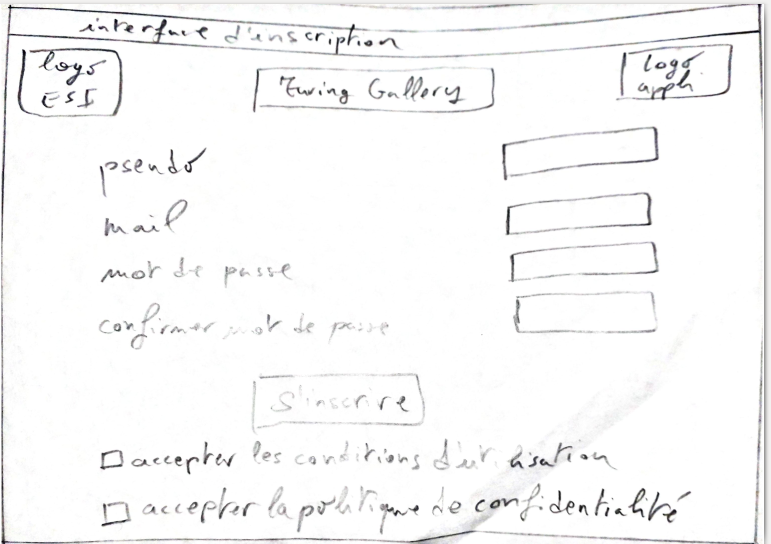 interface d'inscription
logo
ESI
Turing Gallery
logo
appli
pseudo
mail
mot de passe
confirmer mot de passe
S'inscrire
accepter les conditions d'utilisation
accepter la politique de confidentialité